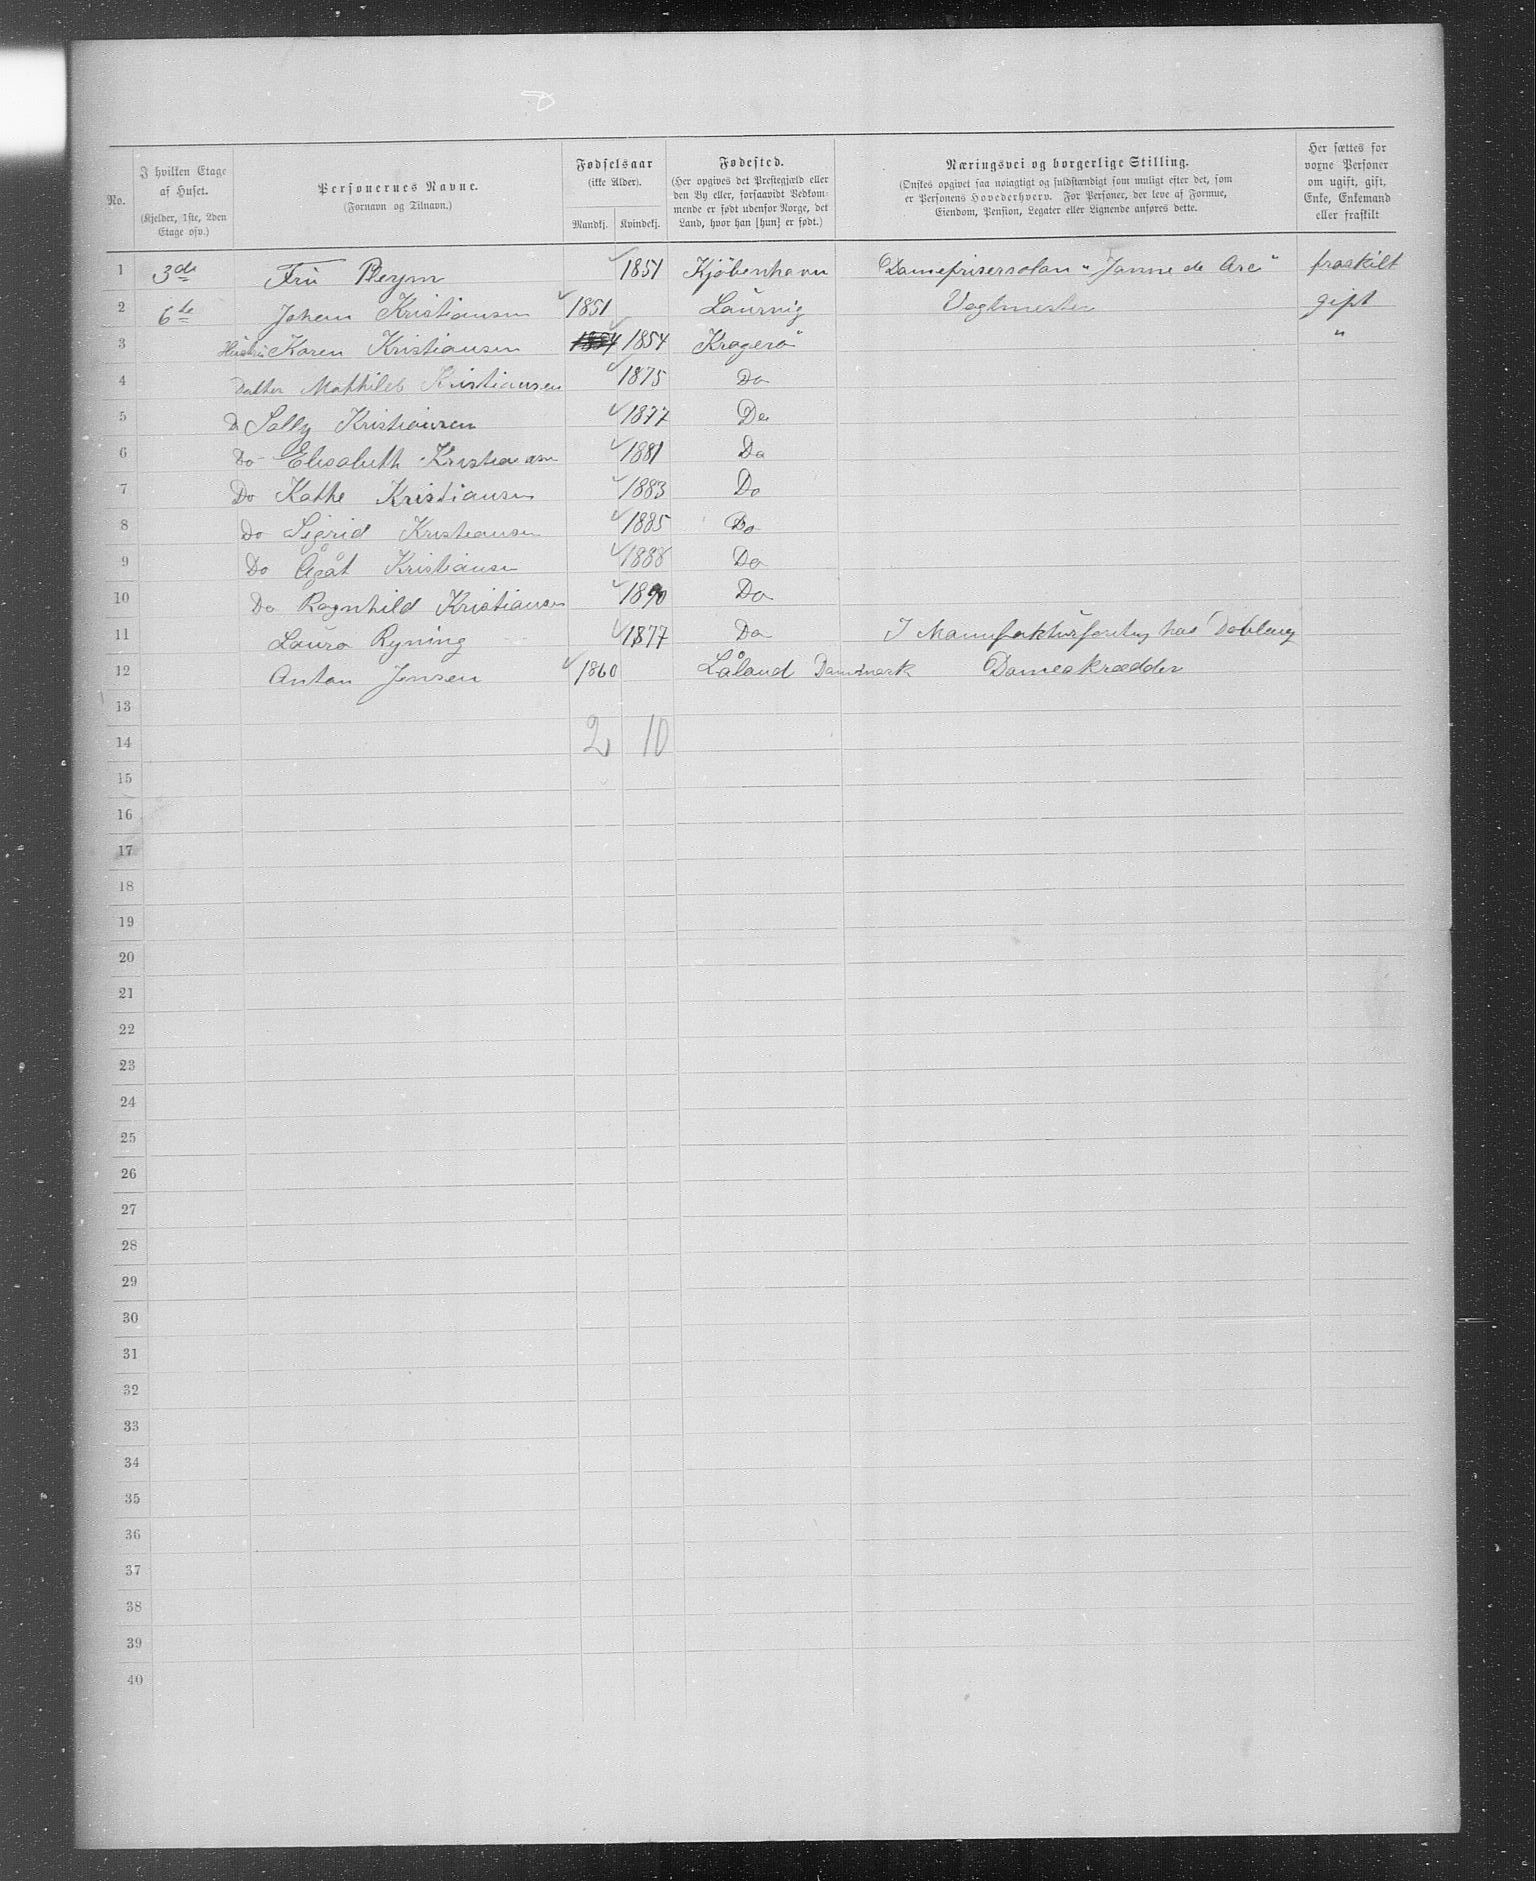 No.
I hvilken Etage af Huset.
(Kjelder, 1ste, 2den Etage osv.)
Personernes Navne.
(Fornavn og Tilnavn.)
Fødselsaar
(ikke Alder).
Mandkj. Kvindekj.
Fødested.
(Her opgives det Prestegjæld eller
den By eller, forsaavidt Vedkom-
mende er født udenfor Norge, det
Land, hvor han [hun] er født.)
Næringsvei og borgerlige Stilling.
(Ønskes opgivet saa nøiagtigt og fuldstændigt som muligt efter det, som
er Personens Hovederhverv. For Personer, der leve af Formue,
Eiendom, Pension, Legater eller Lignende anføres dette.
Her sættes for
vorne Personer
om ugift, gift,
Enke, Enkemand
eller fraskilt
1 3de Fru 1851 Kjöbenhavn Damefrisersalon "Janne de Arc" fraskilt
2 6te Johan Kristiansen 1851 Laurvig Vagtmester gift
3 Hustru Karen Kristiansen 1854 1854 Kragerö "
4 Datter Mathilde Kristiansen 1875 Do
5 D Sally Kristiansen 1877 Do
6 Do Elisabeth Kristiansen 1881 Do
7 Do Kathe Kristiansen 1883 Do
8 Do Sigrid Kristiansen 1885 Do
9 Do Ågåt Kristiansen 1888 Do
10 Do Ragnhild Kristiansen 1890 Do
11 Laura Ryning 1877 Do I Manufakturforetng hos Dobloug
12 Anton Jensen 1860 Låland Danmark Dameskrædder
13
14 2 10
15
16
17
18
19
20
21
22
23
24
25
26
27
28
29
30
31
32
33
34
35
36
37
38
39
40